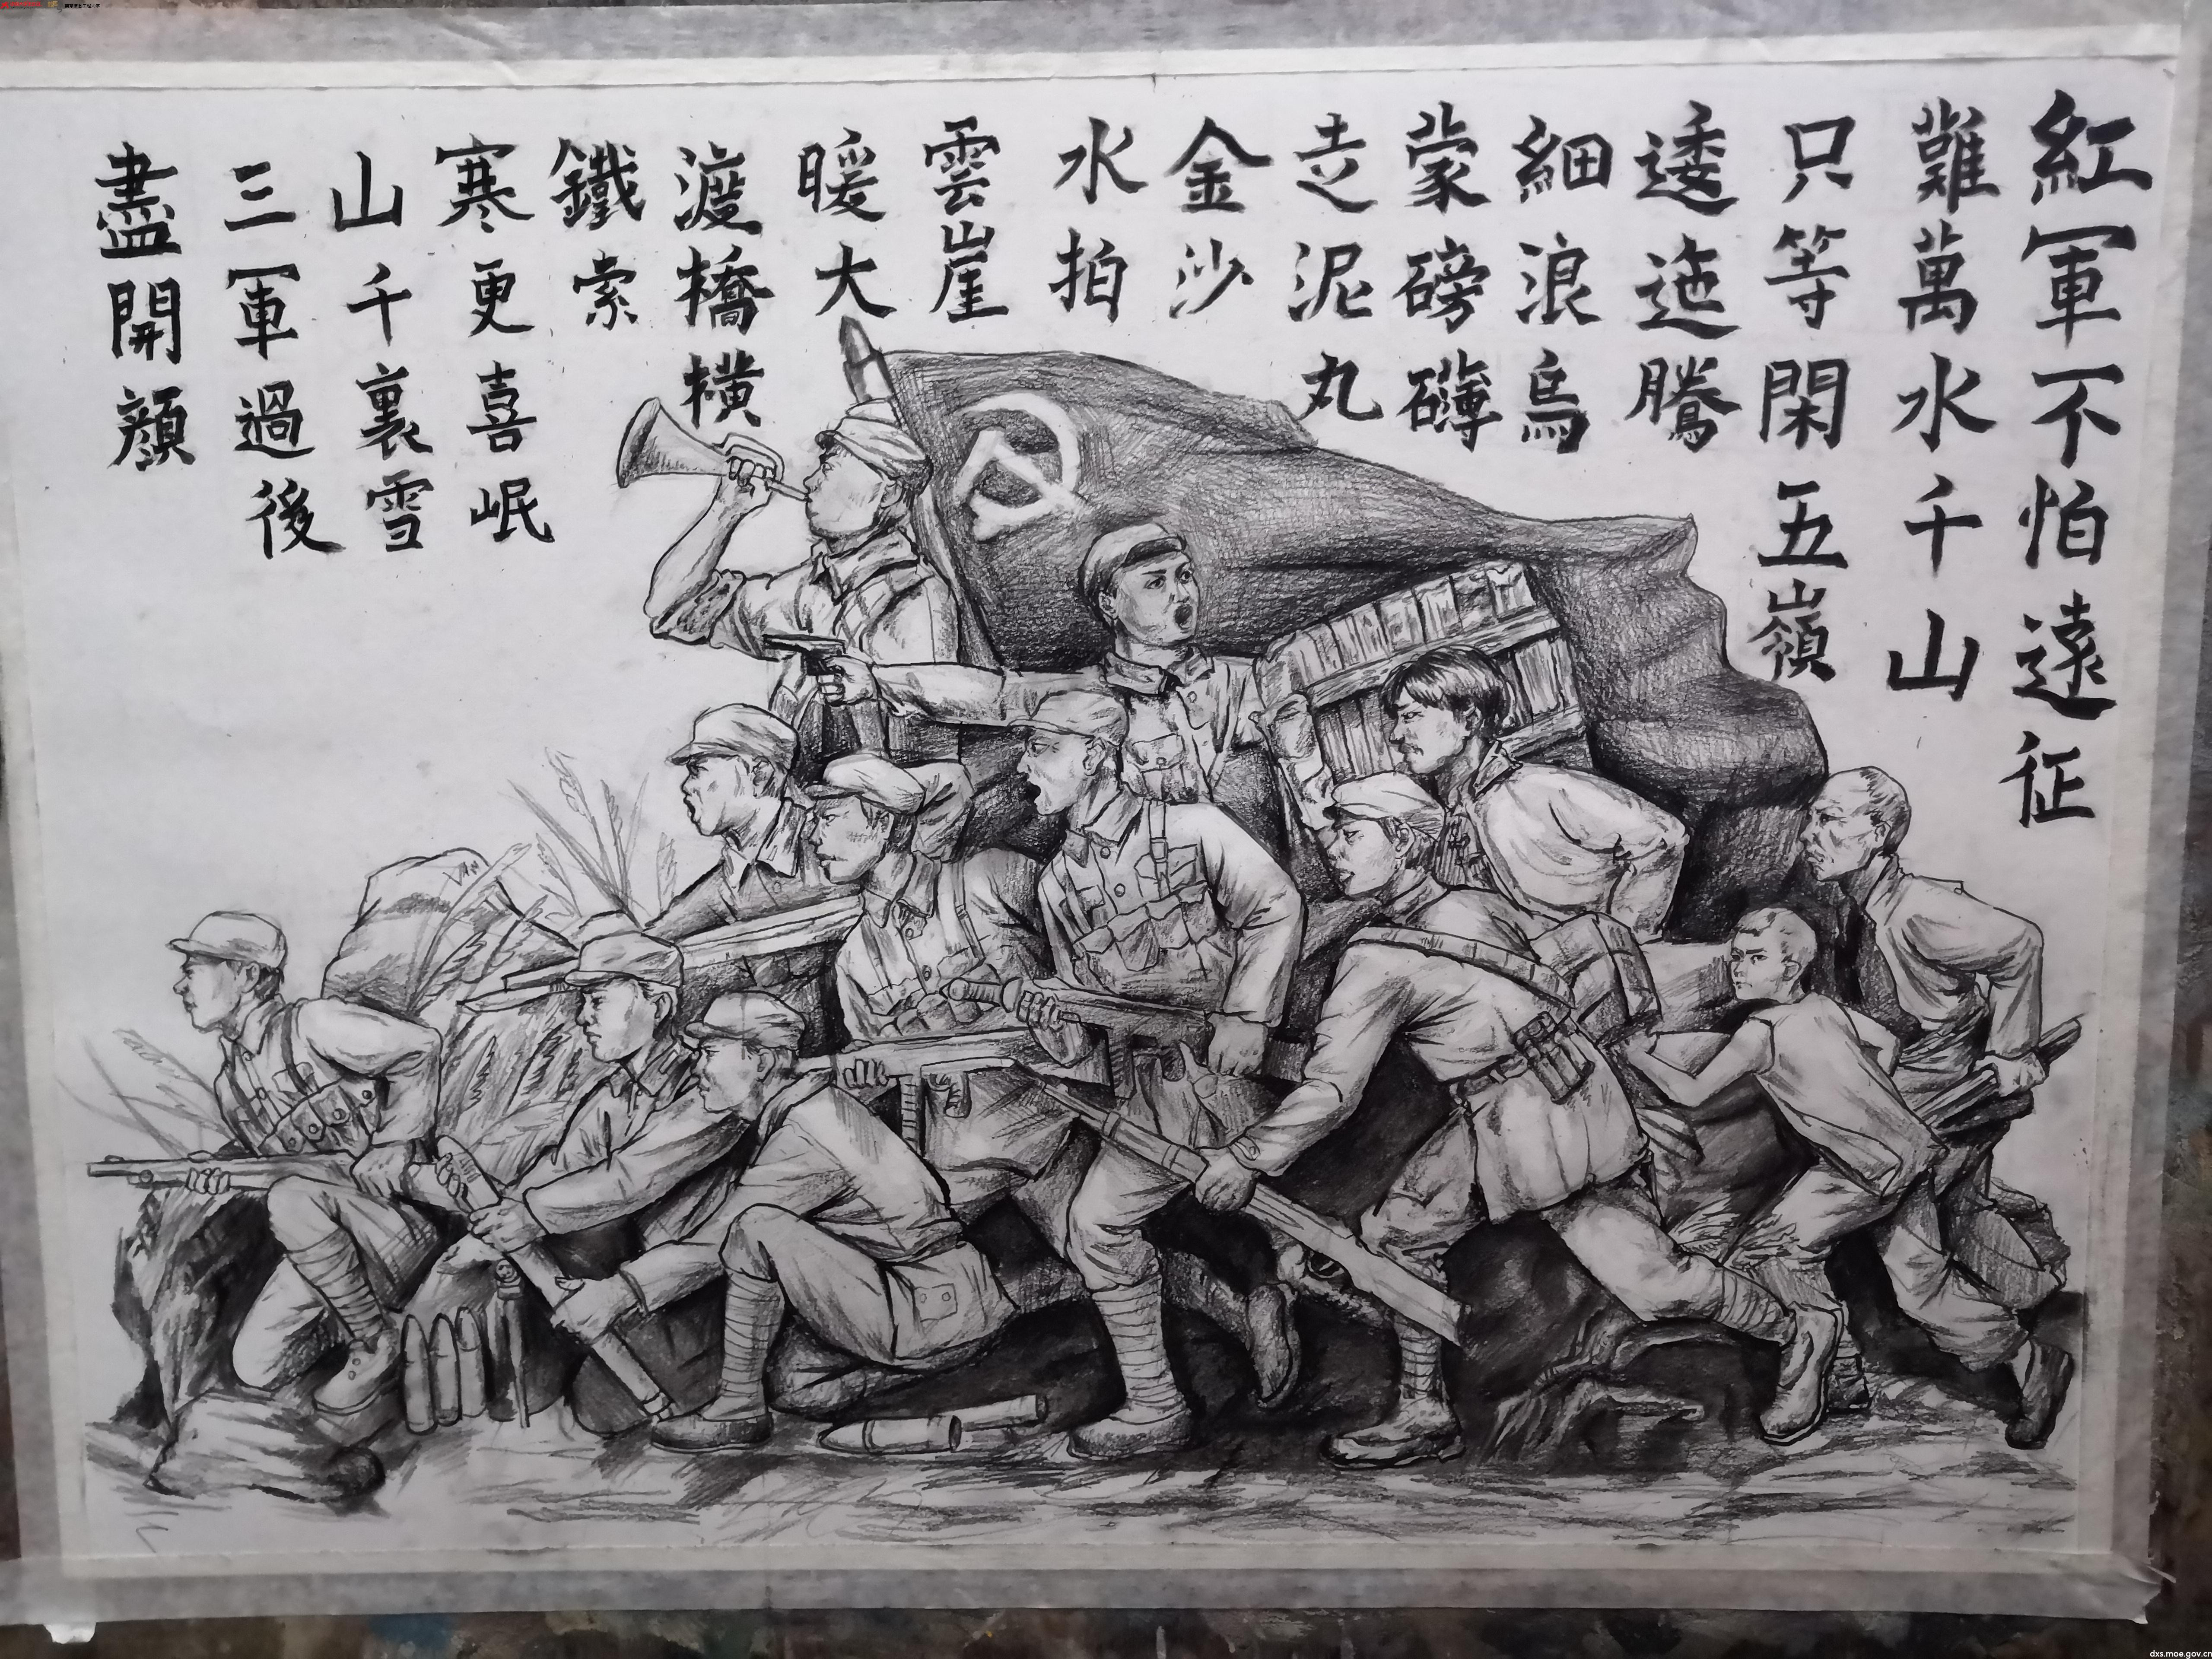 紅軍不怕遠征
難萬水千山
只等閑五嶺
逶迤騰
細浪烏
蒙磅礴
走泥丸
金沙
水拍
雲崖
暖大
渡橋橫
鐵索
寒更喜岷
山千裏雪
三軍過後
盡開顏
dxs.moe.gov.cn